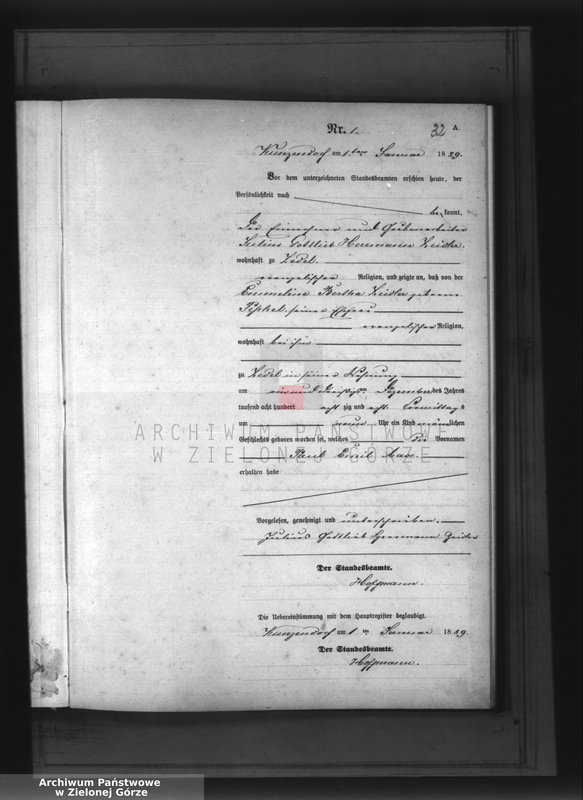 Nr. 1.
32 A.
Kunzendorf am 1ten Januar 1889.
Vor dem unterzeichneten Standesbeamten erschien heute, der
Persönlichkeit nach
bekannt,
der Einwohner und
Julius Gottlieb Herrmann Zeidler
wohnhaft zu Zedel.
evangelischer Religion, und zeigte an, daß von der
Bertha Zeidler geborene
seiner Ehefrau
evangelischer Religion,
wohnhaft bei ihm
zu Zedel in seiner Wohnung
am ein und dreißigsten Dezember des Jahres
tausend acht hundert acht zig und acht Vormittags
um neun Uhr ein Kind männlichen
Geschlechts geboren worden sei, welches die Vornamen
Paul Emil Max.
erhalten habe
Vorgelesen, genehmigt und unterschrieben.
Julius Gottlieb Herrmann Zeidler
Der Standesbeamte.
Hoffmann.
Die Uebereinstimmung mit dem Hauptregister beglaubigt.
Kunzendorf am 1ten Januar 1889.
Der Standesbeamte.
Hoffmann.
ARCHIWUM PAŃSTWOWE
W ZIELONEJ GÓRZE
Archiwum Państwowe
w Zielonej Górze